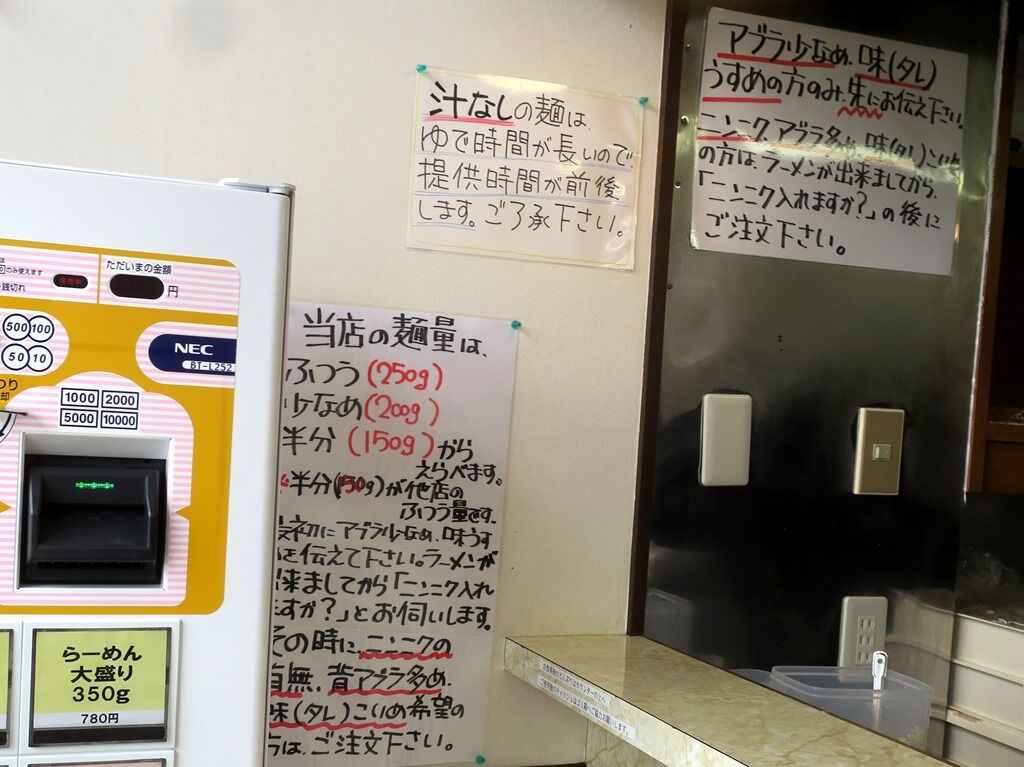 アブラ少なめ、味(タレ)
うすめの方のみ、先にお伝え下さい。
ニンニク、アブラ多め、味(タレ)こいめ
の方は、ラーメンが出来ましてから、
「ニンニク入れますか?」の後に
ご注文下さい。
汁なしの麺は、
ゆで時間が長いので、
提供時間が前後
します。ご了承下さい。
当店の麺量は、
ふつう(250g)
少なめ(200g)
半分(150g)から
えらべます。
半分(150g)が他店の
ふつう量です。
初にアブラ少なめ、味うす
を伝えて下さい。ラーメンが
来ましてから「ニンニク入れ
ますか?」とお伺いします。
その時に、ニンニクの
有無、背アブラ多め、
味(タレ)こいめ希望の
方は、ご注文下さい。
のみ使えます
銭切れ
発売中
ただいまの金額
円
500 100
50 10
NEC
BT-L252
1000 2000
5000 10000
らーめん
大盛り
350g
780円